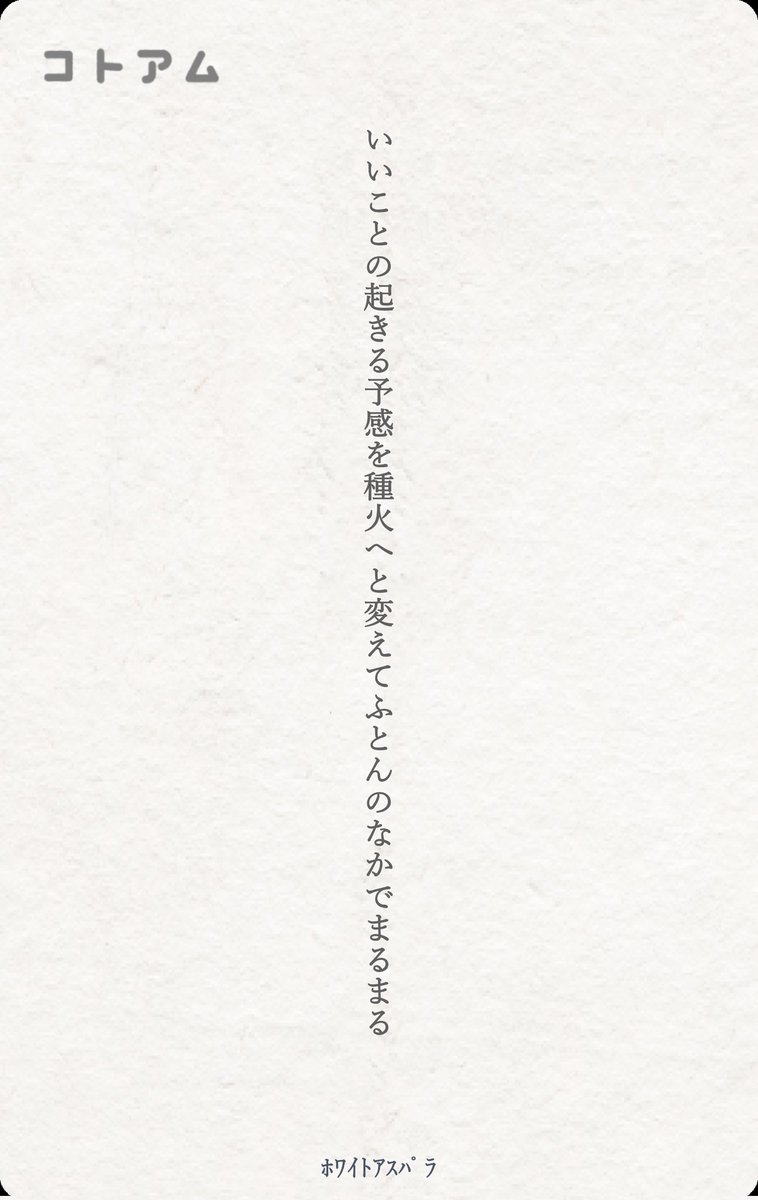 コトアム
いいことの起きる予感を種火へと変えてふとんのなかでまるまる
ﾎﾜｲﾄｱｽﾊﾟﾗ